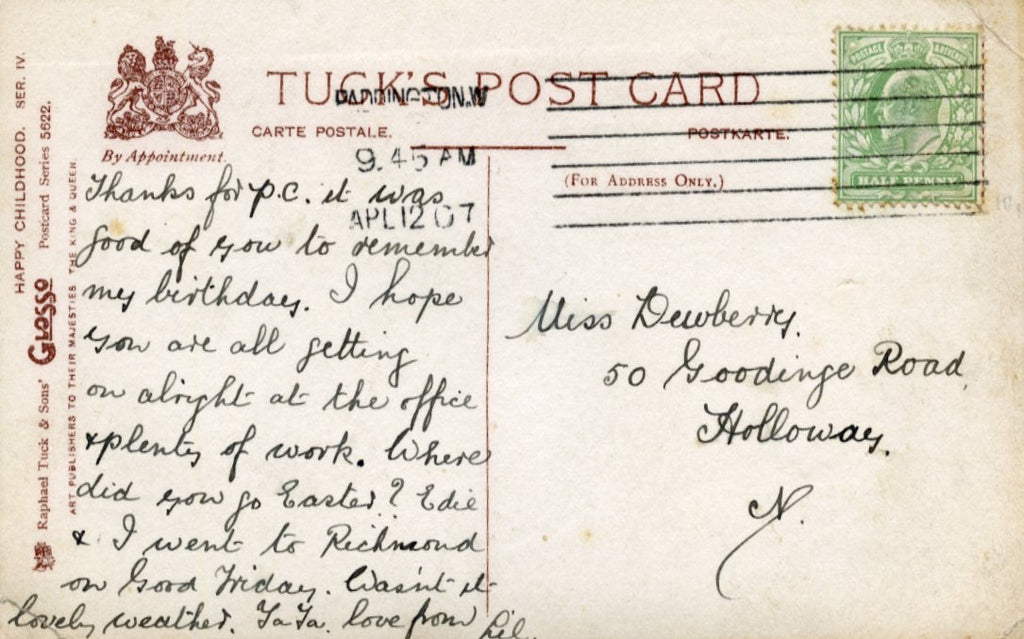 HAPPY CHILDHOOD. SER. IV.
Raphael Tuck & Sons' GLOSSO Postcard Series 5622.
ART PUBLISHERS TO THEIR MAJESTIES THE KING & QUEEN.
By Appointment.
TUCK'S POST CARD
CARTE POSTALE.
POSTKARTE.
(FOR ADDRESS ONLY.)
PADDINGTON.W
9.45 AM
APL 12 07
POSTAGE & REVENUE
HALF PENNY
Thanks for p.c. it was
good of you to remember
my birthday. I hope
you are all getting
on alright at the office
& plenty of work. Where
did you go Easter? Edie
& I went to Richmond
on Good Friday. Wasn't it
lovely weather. Ta Ta. love from Lil.
Miss Dewberry.
50 Goodinge Road
Holloway.
N.